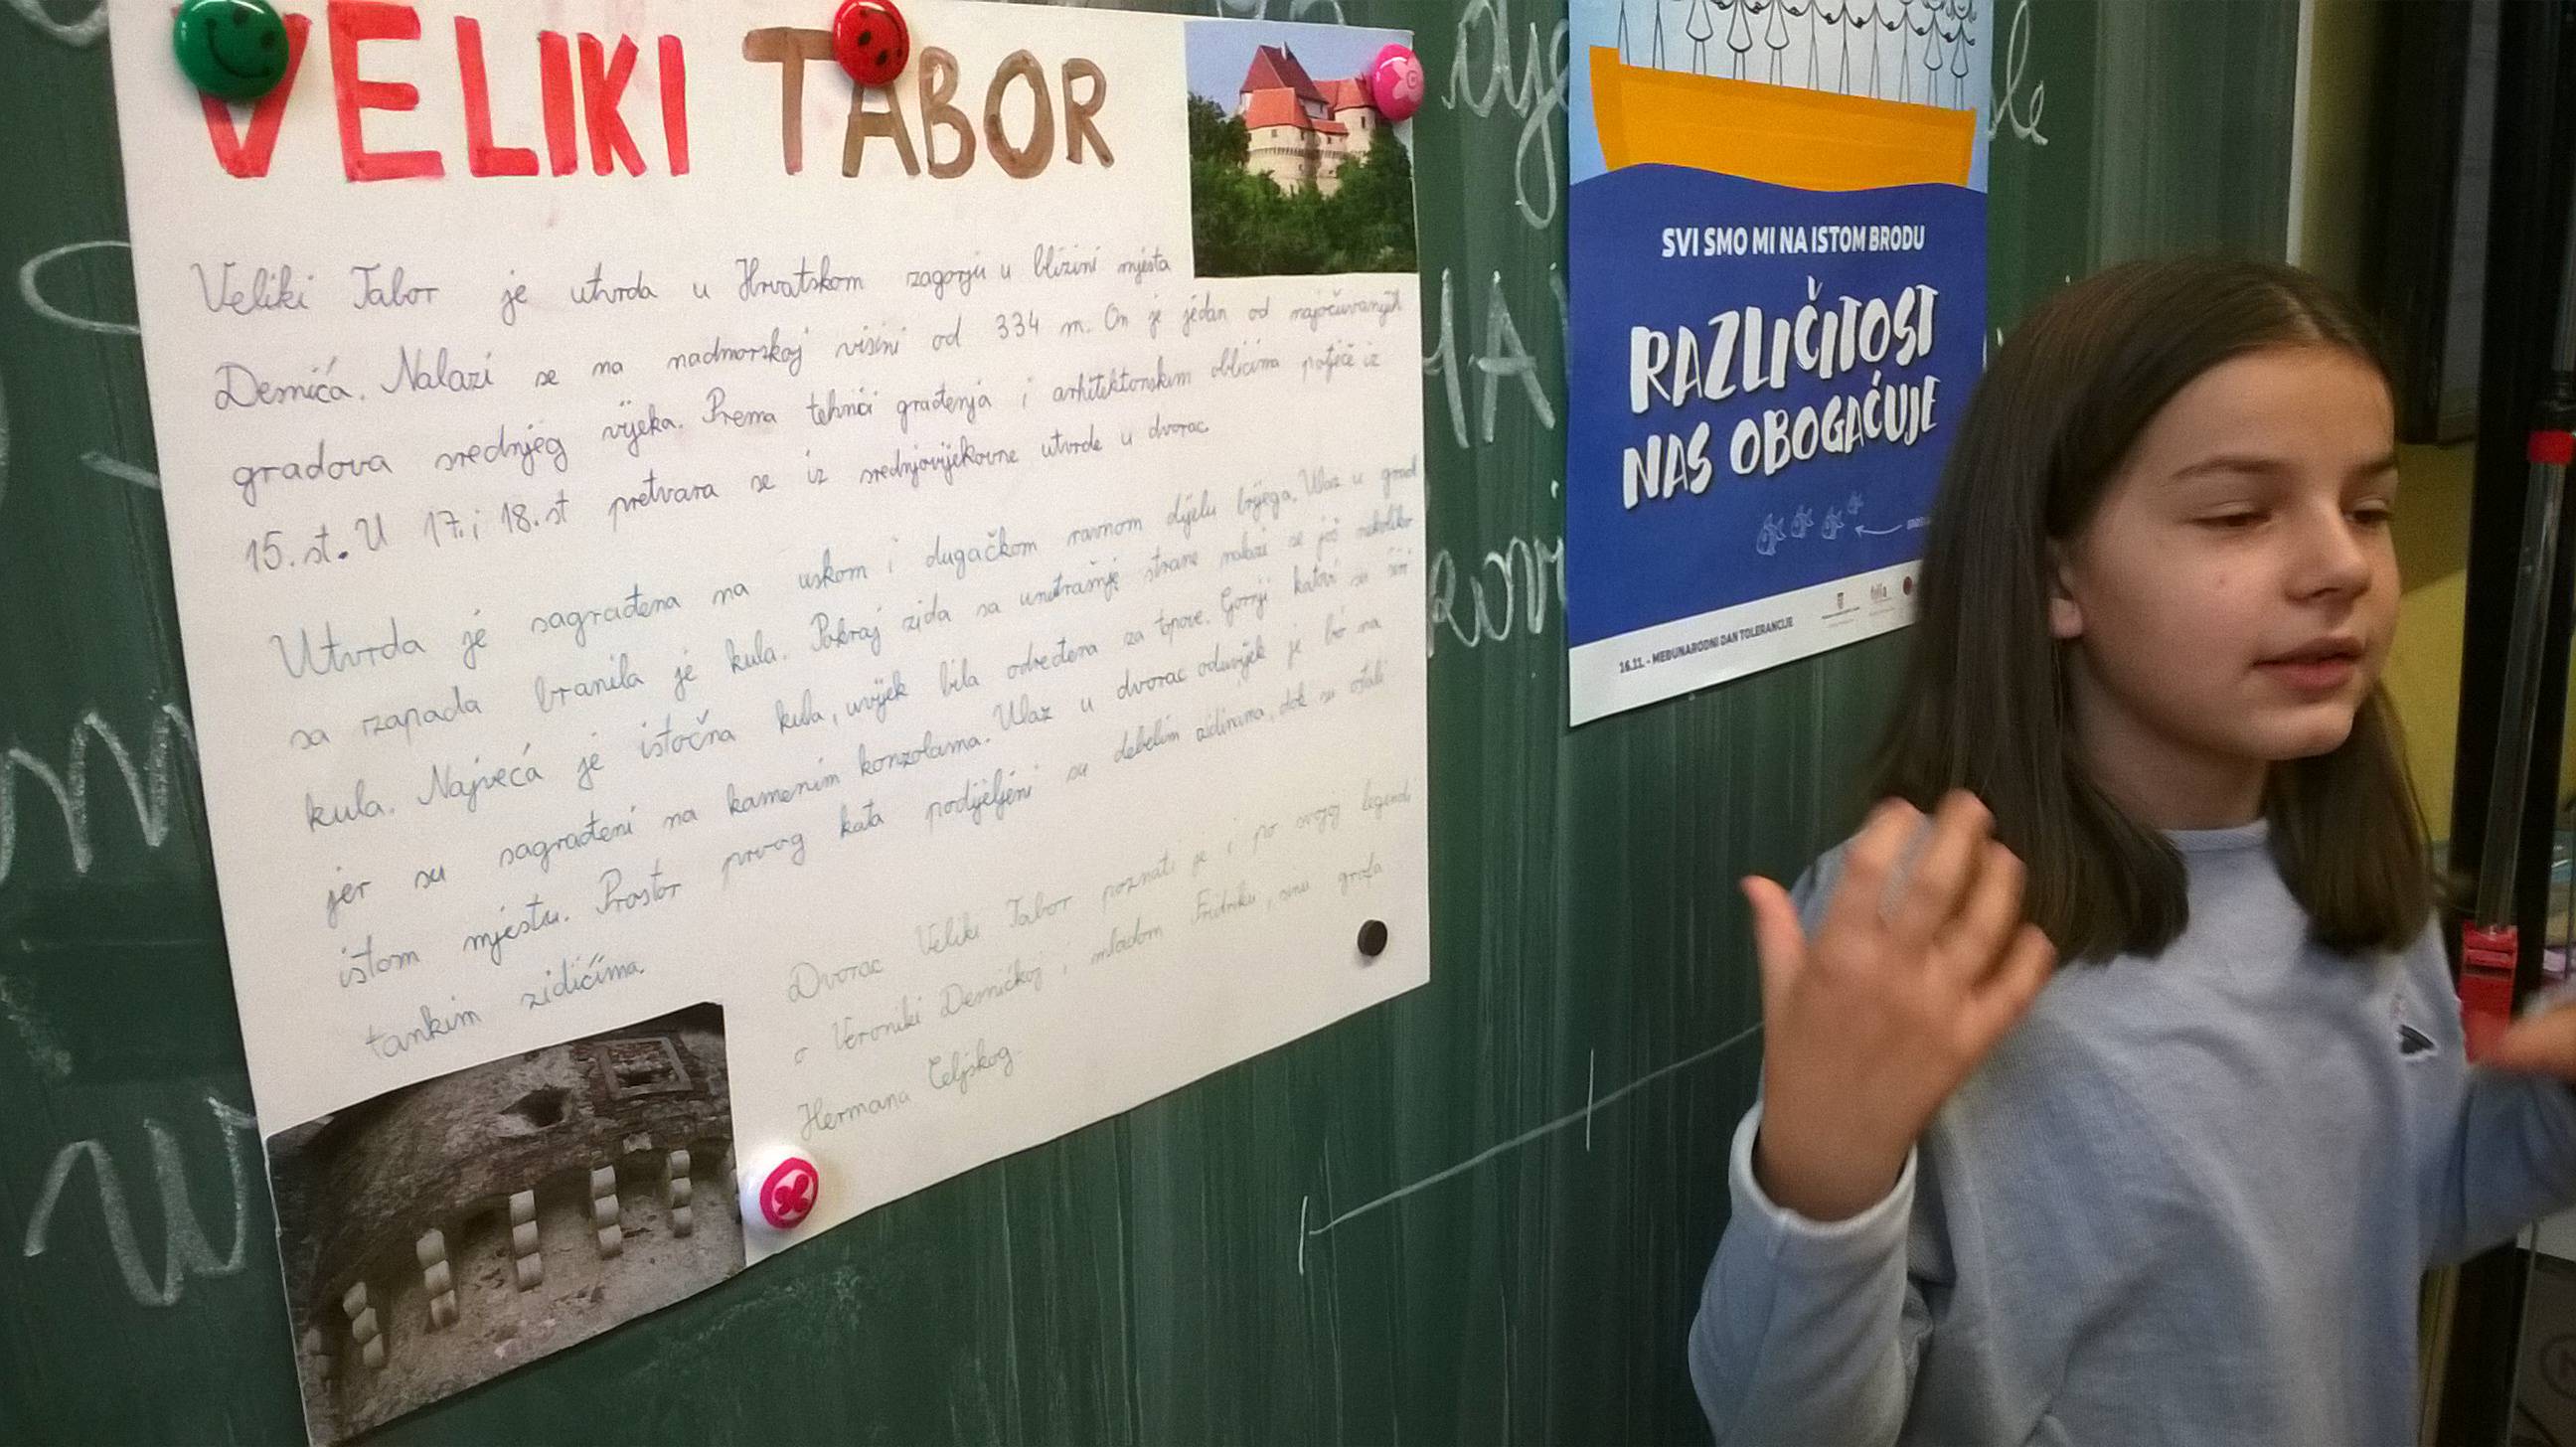 VELIKI TABOR
Veliki Tabor je utvrda u Hrvatskom zagorju u blizini mjesta
Desnića. Nalazi se na nadmorskoj visini od 334 m. On je jedan od najočuvanijih
gradova srednjeg vijeka. Prema tehnici građenja i arhitektonskim oblicima potječe iz
15. st. U 17. i 18. st pretvara se iz srednjovjekovne utvrde u dvorac.
Utvrda je sagrađena na uskom i dugačkom ravnom dijelu brijega. Ulaz u grad
sa zapada branila je kula. Pokraj zida sa unutrašnje strane nalazi se još nekoliko
kula. Najveća je istočna kula, uvijek bila određena za topove. Gornji katovi su širi
jer su sagrađeni na kamenim konzolama. Ulaz u dvorac oduvijek je bio na
istom mjestu. Prostor prvog kata podijeljeni su debelim zidinama, dok su ostali
tankim zidićima.
Dvorac Veliki Tabor poznati je i po svojoj legendi
o Veroniki Desnićkoj i mladom Fridriku, sinu grofa
Hermana Celjskog.
SVI SMO MI NA ISTOM BRODU
RAZLIČITOST
NAS OBOGAĆUJE
16.11. - MEĐUNARODNI DAN TOLERANCIJE